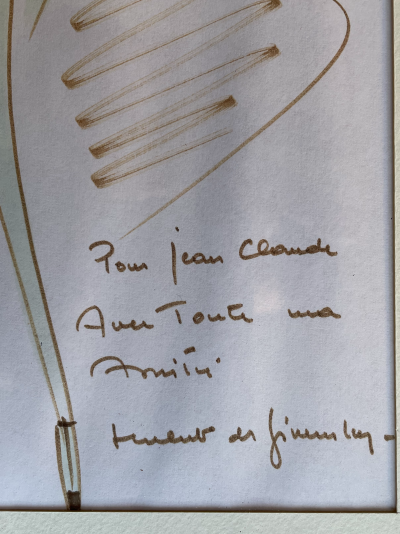 Pour jean Claude
Avec Toute ma
Amitié
Hubert de Givenchy